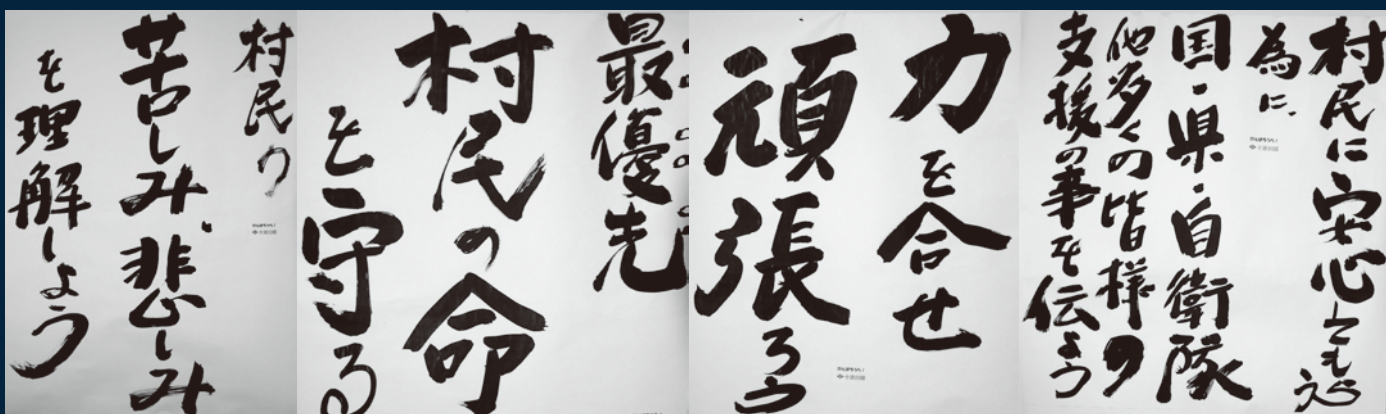 村民に安心してもらう
為に、
国・県・自衛隊
他多くの皆様の
支援の事を伝よう
力を合せ
頑張ろう
最優先
村民の命
を守る
村民の
苦しみ、悲しみ
を理解しよう